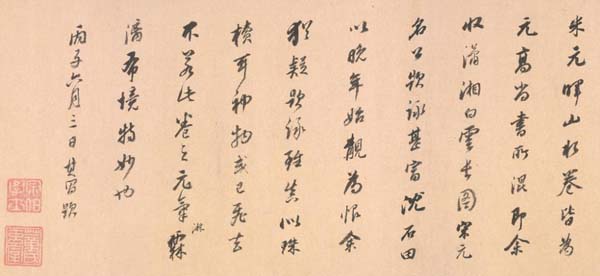 米元暉山水卷皆為
元高尚書所混即余
收瀟湘白雲長圖宋元
名公題詠甚富沈石田
以晚年始觀為恨余
猶疑題雖真似珠
櫝耳神物或已飛去
不若此卷之元氣淋
漓布境特妙也
丙子六月三日其昌題
宗伯學士